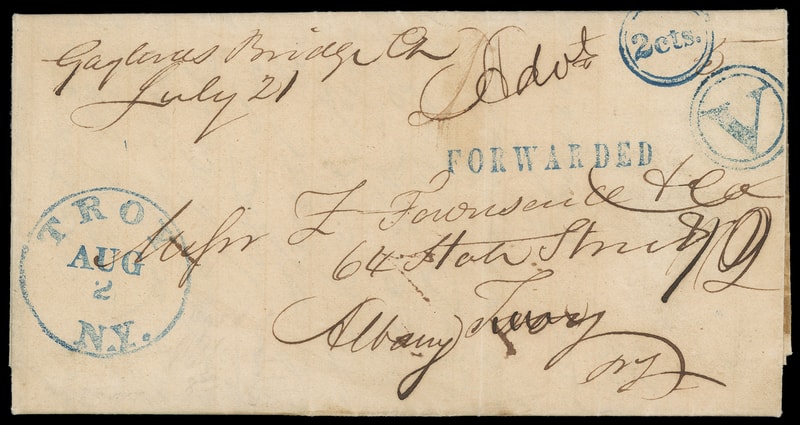 Gaylords Bridge Ct
July 21
Advt
2cts.
5
V
FORWARDED
TROY
AUG
2
N.Y.
Messrs I. Townsend & Co
64 State Street
Albany Troy
NY